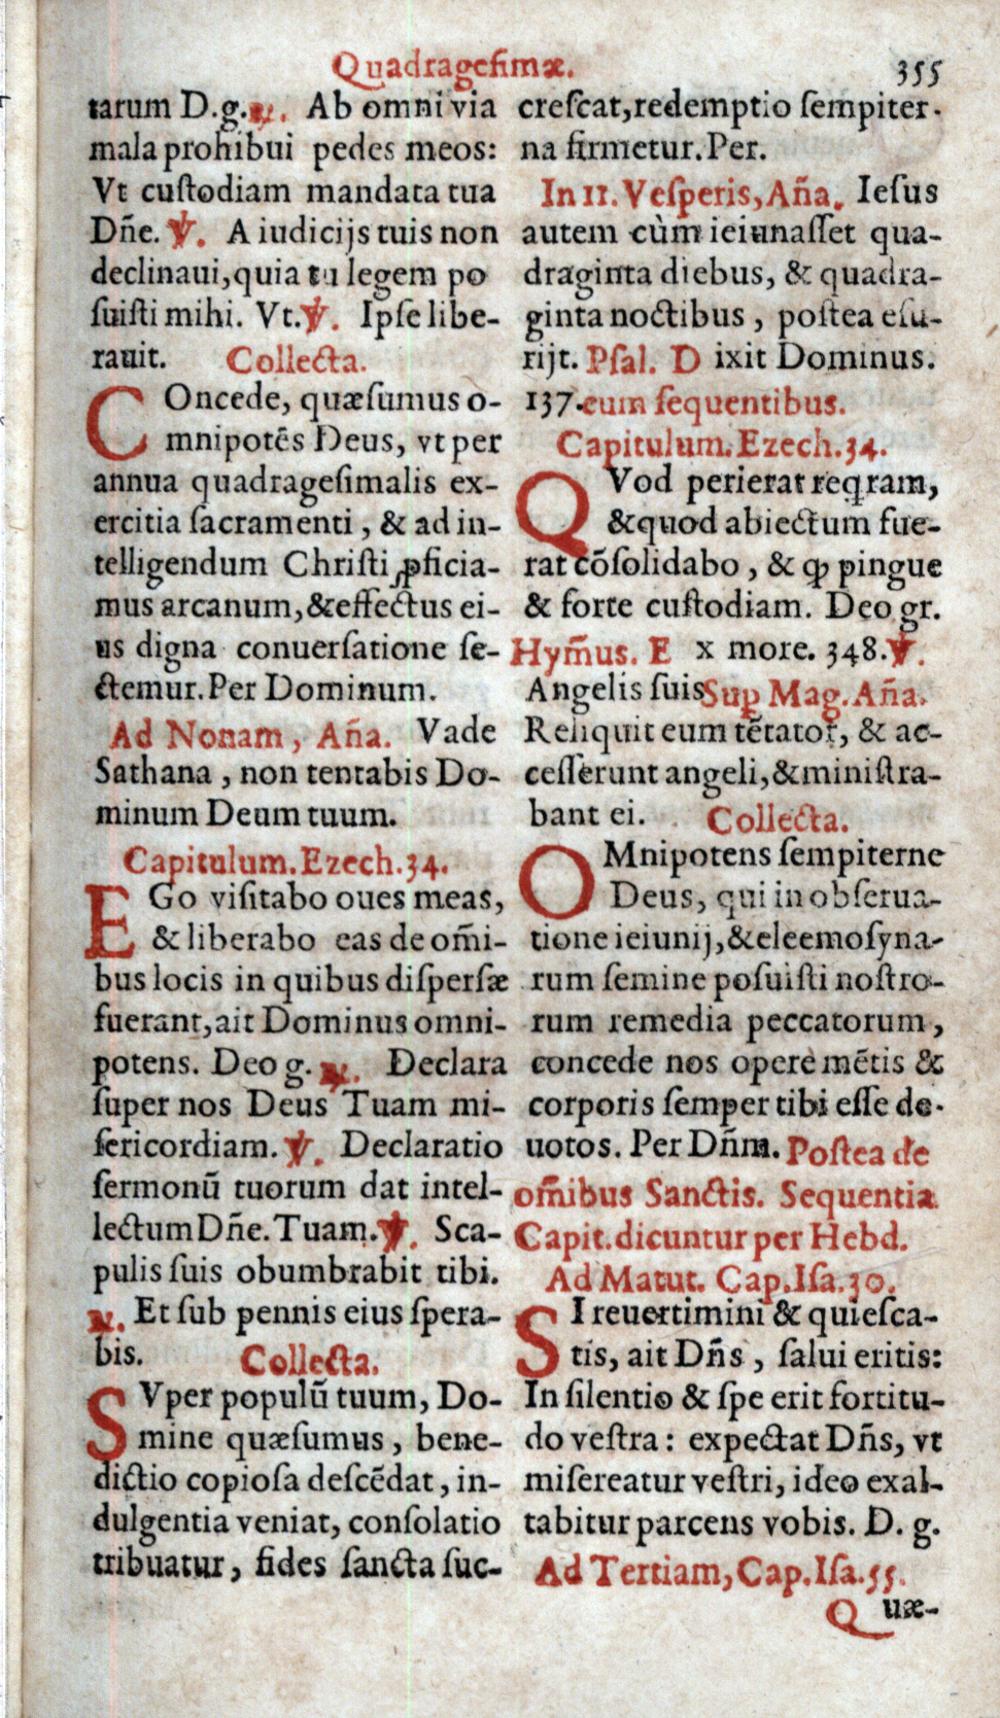 Quadragesimæ. 355
tarum D.g.℟. Ab omni via
mala prohibui pedes meos:
Vt custodiam mandata tua
Dñe. ℣. A iudicijs tuis non
declinaui, quia tu legem po
suisti mihi. Vt. ℣. Ipse libe-
rauit. Collecta.
COncede, quæsumus o-
mnipotẽs Deus, vt per
annua quadragesimalis ex-
ercitia sacramenti, & ad in-
telligendum Christi ꝓficia-
mus arcanum, & effectus ei-
us digna conuersatione se-
ctemur. Per Dominum.
Ad Nonam, Aña. Vade
Sathana, non tentabis Do-
minum Deum tuum.
Capitulum. Ezech. 34.
EGo visitabo oues meas,
& liberabo eas de om̃i-
bus locis in quibus dispersæ
fuerant, ait Dominus omni-
potens. Deo g. ℟. Declara
super nos Deus Tuam mi-
sericordiam. ℣. Declaratio
sermonũ tuorum dat intel-
lectum Dñe. Tuam. ℣. Sca-
pulis suis obumbrabit tibi.
℟. Et sub pennis eius spera-
bis. Collecta.
SVper populũ tuum, Do-
mine quæsumus, bene-
dictio copiosa descẽdat, in-
dulgentia veniat, consolatio
tribuatur, fides sancta suc-
crescat, redemptio sempiter-
na firmetur. Per.
In II. Vesperis, Aña. Iesus
autem cùm ieiunasset qua-
draginta diebus, & quadra-
ginta noctibus, postea esu-
rijt. Psal. Dixit Dominus.
137. cum sequentibus.
Capitulum. Ezech. 34.
QVod perierat reqram,
& quod abiectum fue-
rat cõsolidabo, & ꝙ pingue
& forte custodiam. Deo gr.
Hym̃us. Ex more. 348. ℣.
Angelis suis Sup Mag. Aña.
Reliquit eum tẽtator, & ac-
cesserunt angeli, & ministra-
bant ei. Collecta.
OMnipotens sempiterne
Deus, qui in obserua-
tione ieiunij, & eleemosyna-
rum semine posuisti nostro-
rum remedia peccatorum,
concede nos opere mẽtis &
corporis semper tibi esse de-
uotos. Per Dñm. Postea de
om̃ibus Sanctis. Sequentia
Capit. dicuntur per Hebd.
Ad Matut. Cap. Isa. 30.
SI reuertimini & quiesca-
tis, ait Dñs, salui eritis:
In silentio & spe erit fortitu-
do vestra: expectat Dñs, vt
misereatur vestri, ideo exal-
tabitur parcens vobis. D. g.
Ad Tertiam, Cap. Isa. 55.
Quæ-